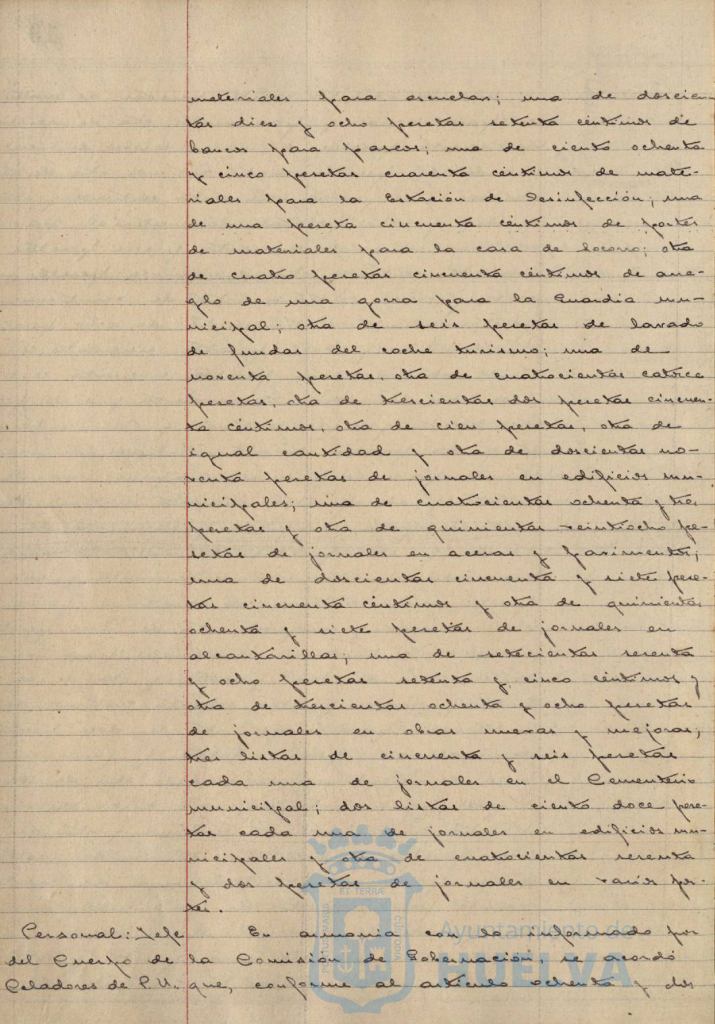 materiales para escuelas; una de doscien-
tas diez y ocho pesetas setenta céntimos de
bancos para paseos; una de ciento ochenta
y cinco pesetas cuarenta céntimos de mate-
riales para la Estación de Desinfección; una
de una peseta cincuenta céntimos de portes
de materiales para la casa de Socorro; otra
de cuatro pesetas cincuenta céntimos de arre-
glo de una gorra para la Guardia mu-
nicipal; otra de seis pesetas de lavado
de fundas del coche turismo; una de
noventa pesetas, otra de cuatrocientas catorce
pesetas, otra de trescientas dos pesetas cincuen-
ta céntimos, otra de cien pesetas, otra de
igual cantidad y otra de doscientas no-
venta pesetas de jornales en edificios mu-
nicipales; una de cuatrocientas ochenta y tres
pesetas y otra de quinientas veintiocho pe-
setas de jornales en aceras y pavimentos;
una de doscientas cincuenta y siete pese-
tas cincuenta céntimos y otra de quinientas
ochenta y siete pesetas de jornales en
alcantarillas; una de setecientas sesenta
y ocho pesetas setenta y cinco céntimos y
otra de trescientas ochenta y ocho pesetas
de jornales en obras nuevas y mejoras;
tres listas de cincuenta y seis pesetas
cada una de jornales en el Cementerio
municipal; dos listas de ciento doce pese-
tas cada una de jornales en edificios mu-
nicipales y otra de cuatrocientas sesenta
y dos pesetas de jornales en varios
Personal: Jefe En armonía con lo informado por
del Cuerpo de la Comisión de Gobernación, se acordó
Celadores de P.U. que, conforme al artículo ochenta y dos
Ayuntamiento de
HUELVA